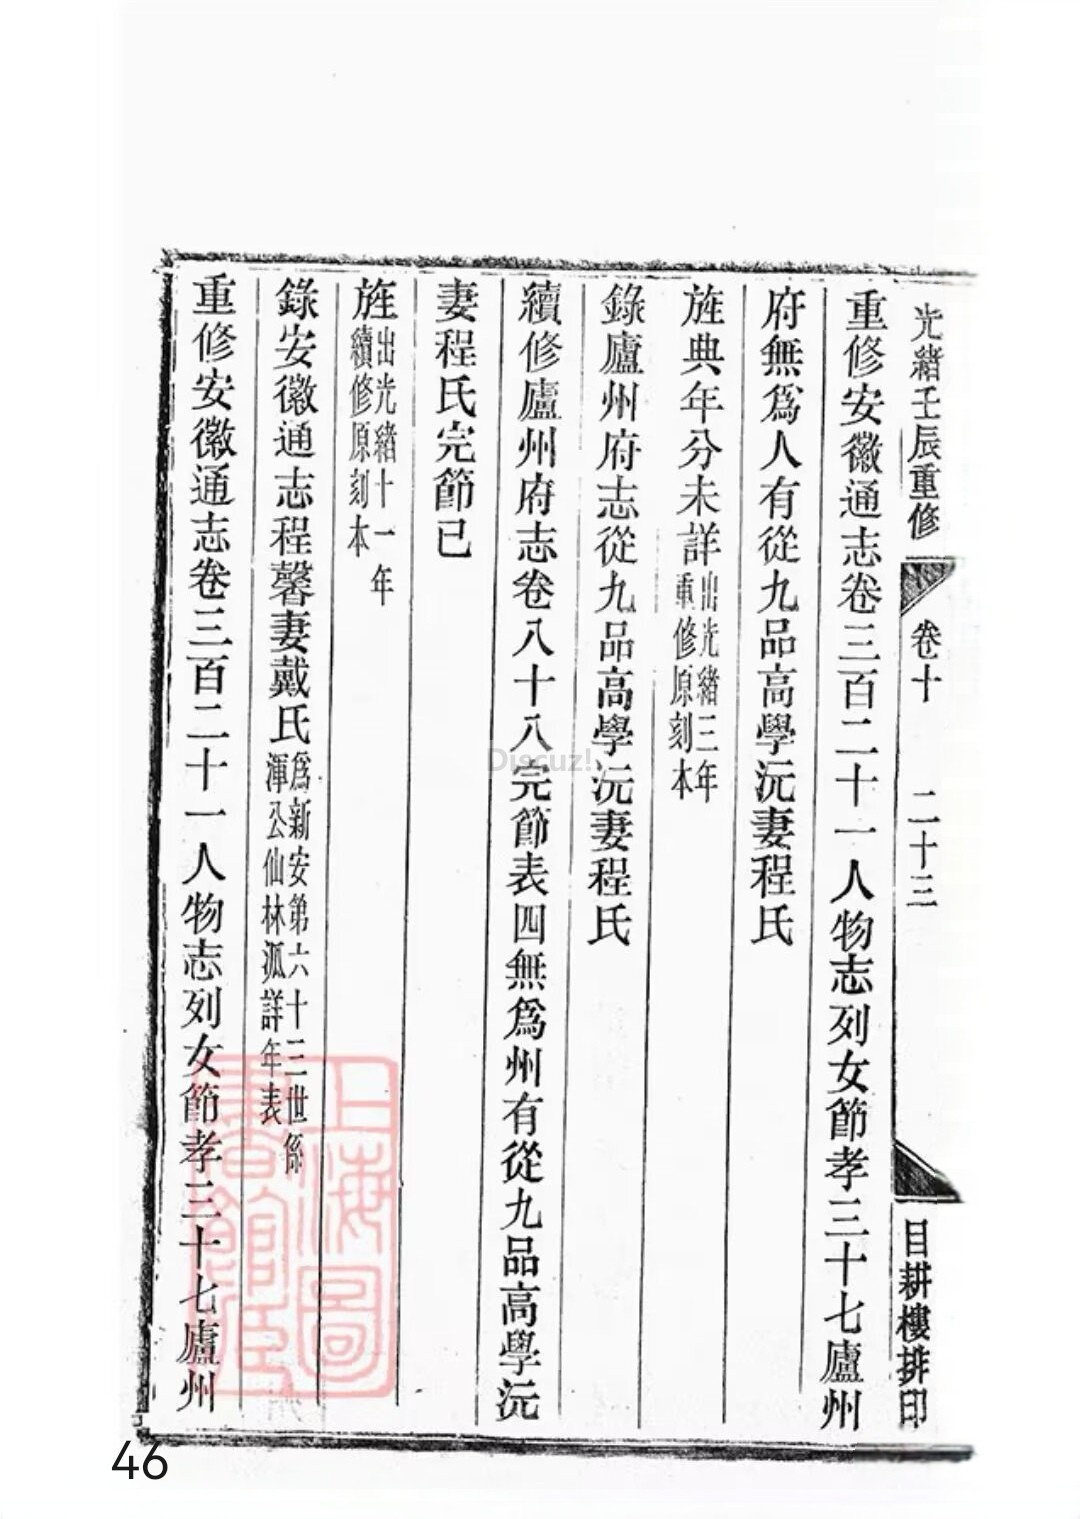 光緒壬辰重修 卷十 二十三 目耕樓排印
重修安徽通志卷三百二十一人物志列女節孝三十七廬州
府無爲人有從九品高學沅妻程氏
旌典年分未詳出光緒三年重修原刻本
錄廬州府志從九品高學沅妻程氏
續修廬州府志卷八十八完節表四無爲州有從九品高學沅
妻程氏完節已
旌出光緒十一年續修原刻本
錄安徽通志程馨妻戴氏爲新安第六十三世係渾公仙林派詳年表
重修安徽通志卷三百二十一人物志列女節孝三十七廬州
上海圖書館藏
Discuz!
46